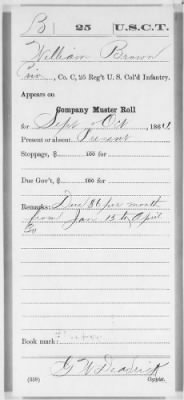 B | 25 | U.S.C.T.
William Brown
Co. C, 25 Reg't U. S. Col'd Infantry.
Appears on
Company Muster Roll
for Sept & Oct, 1864
Present or absent Present
Stoppage, $ 100 for
Due Gov't, $ 100 for
Remarks: Due $6 per month
from Jan 13 to April
Book mark:
(339) Copyist.